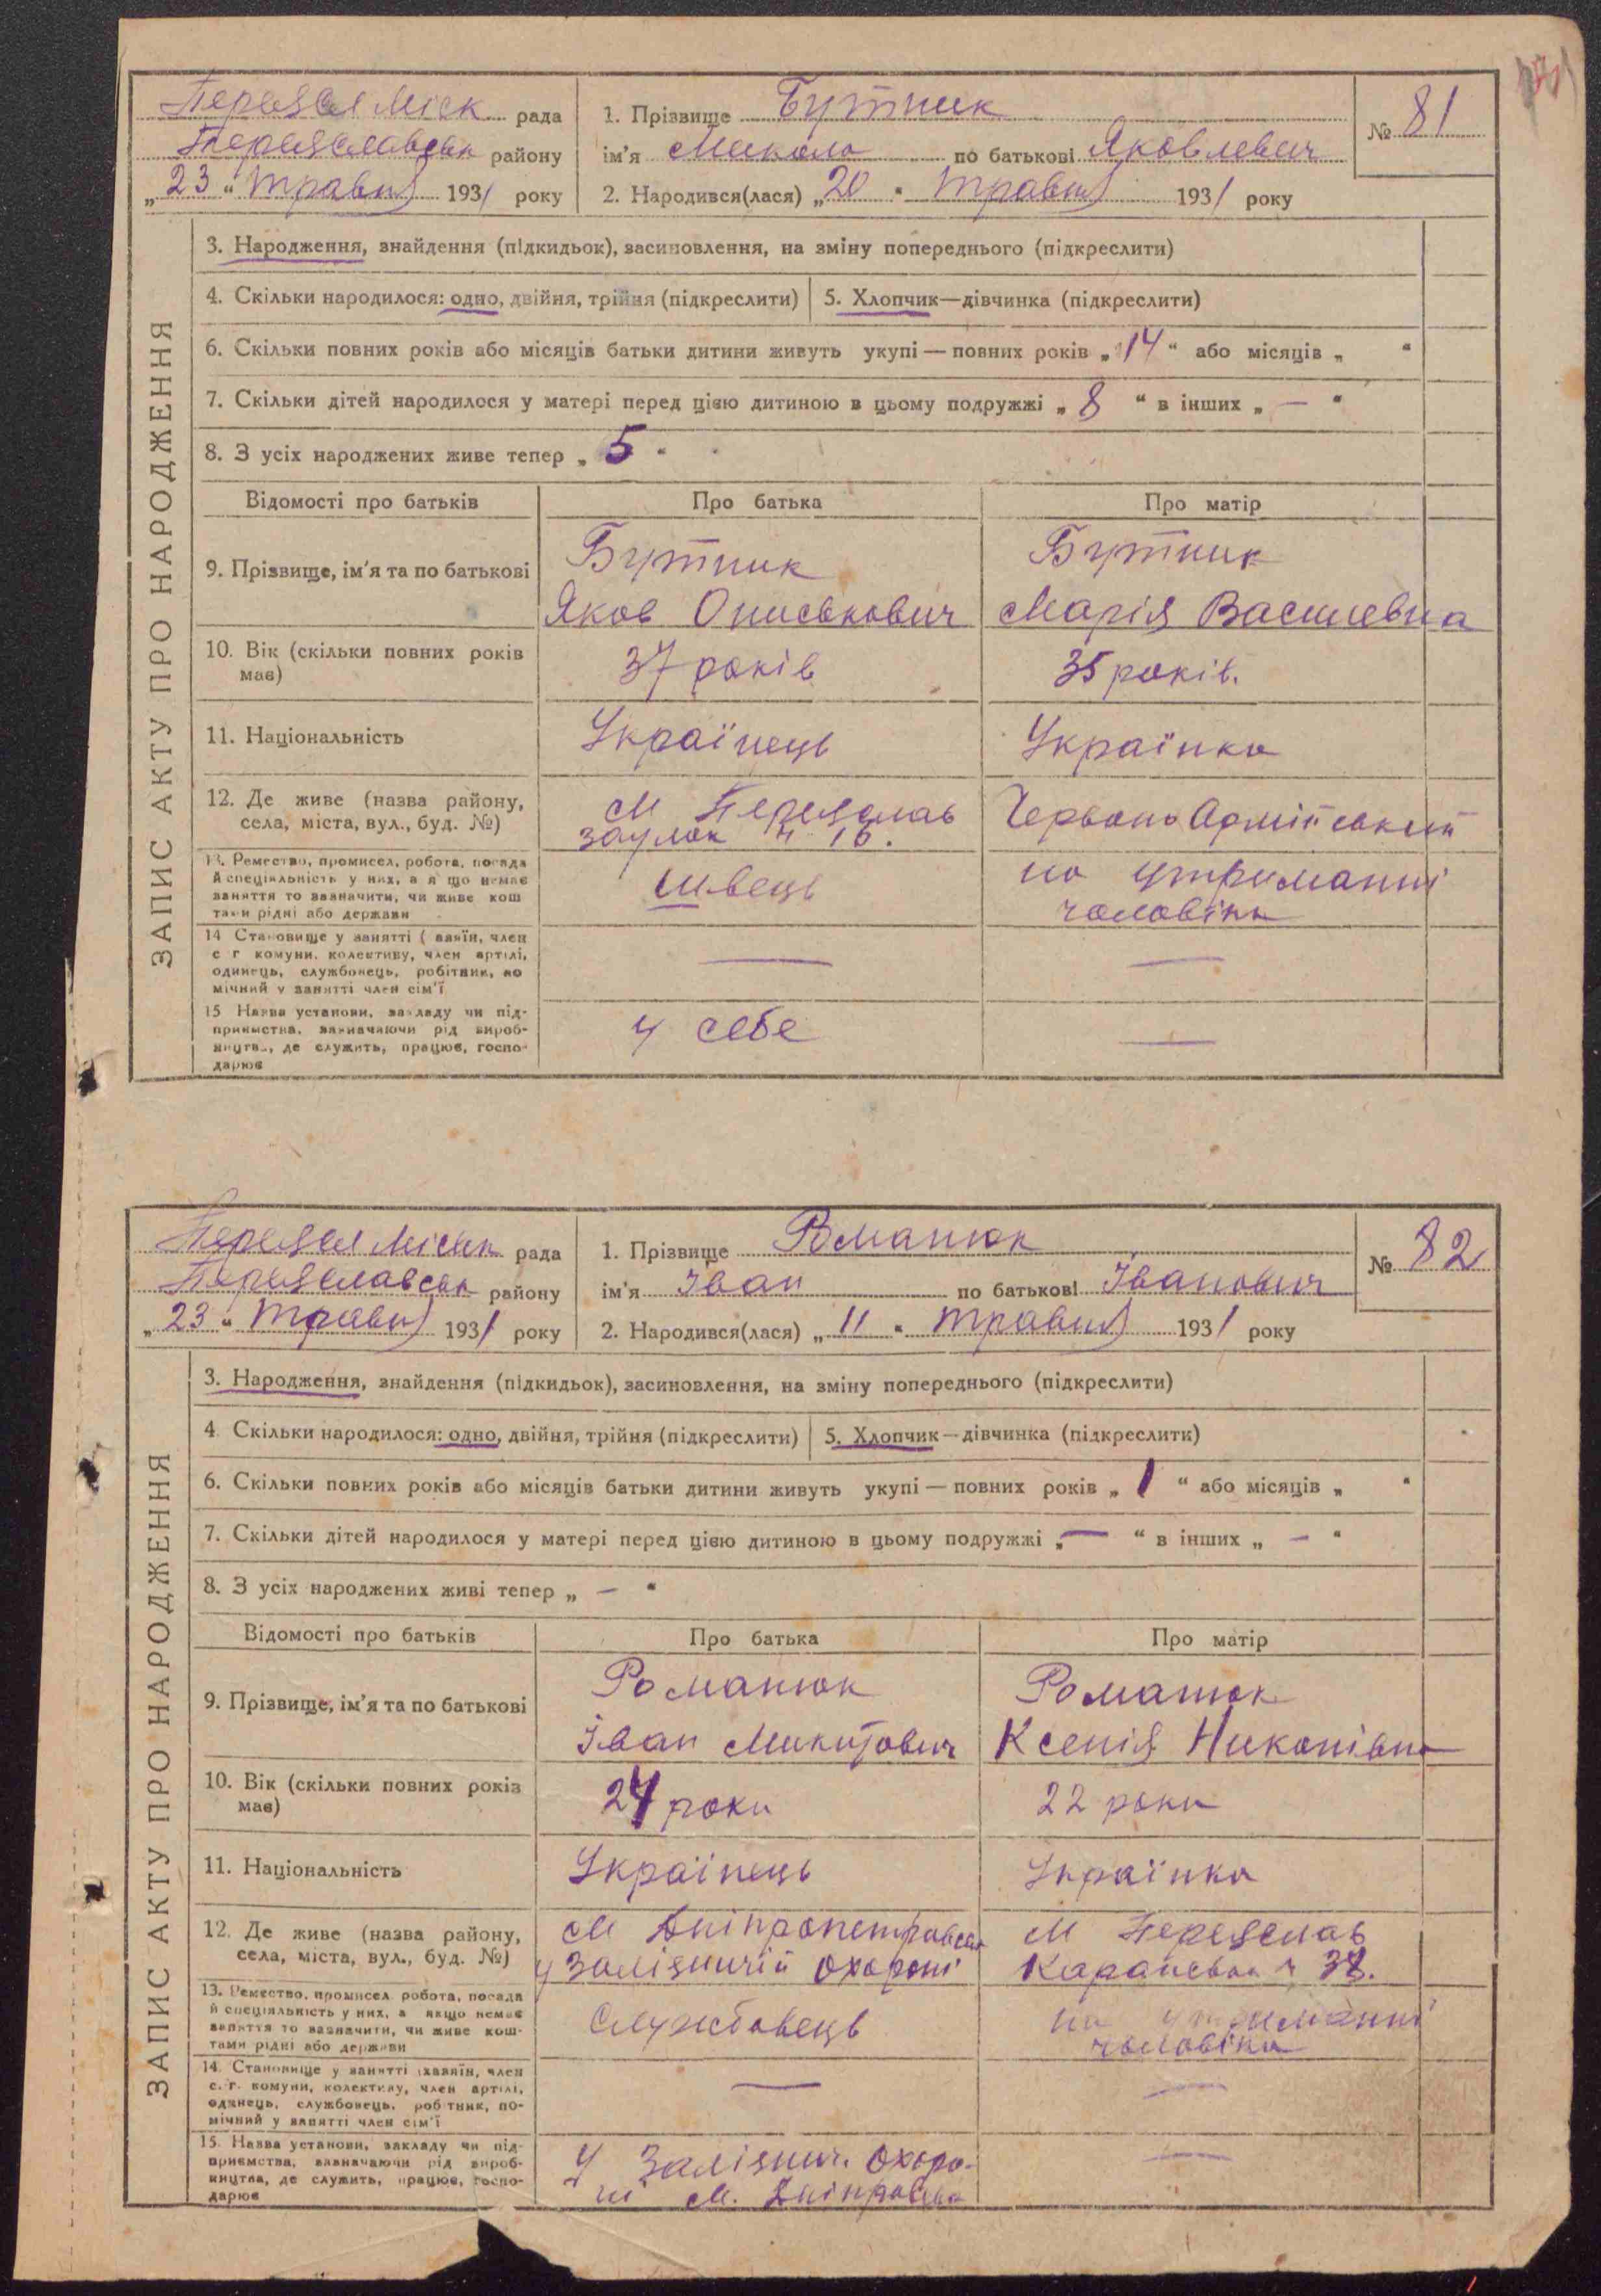 Переясл Міск рада
Переяславськ району
„23“ травня 1931 року
1. Прізвище Бутник
ім'я Микола по батькові Яковлевич
2. Народився(лася) „20“ травня 1931 року
№ 81
ЗАПИС АКТУ ПРО НАРОДЖЕННЯ
3. Народження, знайдення (підкидьок), засиновлення, на зміну попереднього (підкреслити)
4. Скільки народилося: одно, двійня, трійня (підкреслити)
5. Хлопчик—дівчинка (підкреслити)
6. Скільки повних років або місяців батьки дитини живуть укупі — повних років „14“ або місяців „ “
7. Скільки дітей народилося у матері перед цією дитиною в цьому подружжі „8“ в інших „—“
8. З усіх народжених живе тепер „5“
Відомості про батьків
Про батька
Про матір
9. Прізвище, ім'я та по батькові
Бутник
Яков Ониськович
Бутник
Марія Василевна
10. Вік (скільки повних років
має)
37 років
35 років.
11. Національність
Українець
Українка
12. Де живе (назва району,
села, міста, вул., буд. №)
м Переяслав
заулок ч 16.
Червоно Армійський
13. Ремество, промисел, робота, посада
й спеціяльність у них, а якщо немає
заняття то зазначити, чи живе кош
тами рідні або держави
швець
на утриманні
чоловіка
14 Становище у занятті (хазяїн, член
с г комуни, колективу, член артілі,
одинець, службовець, робітник, по
мічний у занятті член сім'ї
—
—
15 Назва установи, закладу чи під-
приємства, зазначаючи рід вироб-
ництва, де служить, працює, госпо-
дарює
у себе
—
Переясл Міськ рада
Переяславськ району
„23“ травня 1931 року
1. Прізвище Романюк
ім'я Іван по батькові Іванович
2. Народився(лася) „11“ травня 1931 року
№ 82
ЗАПИС АКТУ ПРО НАРОДЖЕННЯ
3. Народження, знайдення (підкидьок), засиновлення, на зміну попереднього (підкреслити)
4 Скільки народилося: одно, двійня, трійня (підкреслити)
5. Хлопчик—дівчинка (підкреслити)
6. Скільки повних років або місяців батьки дитини живуть укупі — повних років „1“ або місяців „ “
7. Скільки дітей народилося у матері перед цією дитиною в цьому подружжі „—“ в інших „—“
8. З усіх народжених живі тепер „—“
Відомості про батьків
Про батька
Про матір
9. Прізвище, ім'я та по батькові
Романюк
Іван Микитович
Романюк
Ксенія Никонівна
10. Вік (скільки повних років
має)
24 роки
22 роки
11. Національність
Українець
Українка
12. Де живе (назва району,
села, міста, вул., буд. №)
м Дніпропетровськ
у Залізничій охороні
м Переяслав
Каранська ч 38.
13. Ремество, промисел робота, посада
й спеціяльність у них, а якщо немає
заняття то зазначити, чи живе кош-
тами рідні або держави
Службовець
на утриманні
чоловіка
14. Становище у занятті (хазяїн, член
с. г. комуни, колективу, член артілі,
одинець, службовець, робітник, по-
мічний у занятті член сім'ї
—
—
15. Назва установи, закладу чи під-
приємства, зазначаючи рід вироб-
ництва, де служить, працює, госпо-
дарює
У Залізнич. охоро-
ні м.
—